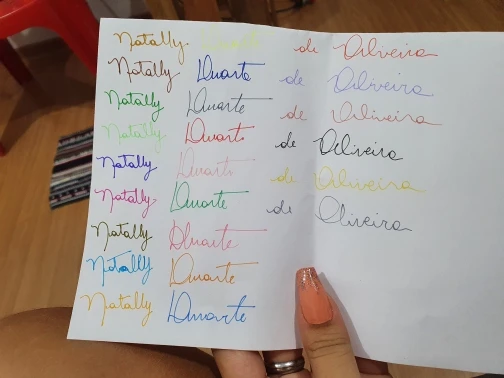 Natally Duarte de Oliveira
Natally Duarte de Oliveira
Natally Duarte de Oliveira
Natally Duarte de Oliveira
Natally Duarte de Oliveira
Natally Duarte de Oliveira
Natally Duarte
Natally Duarte
Natally Duarte